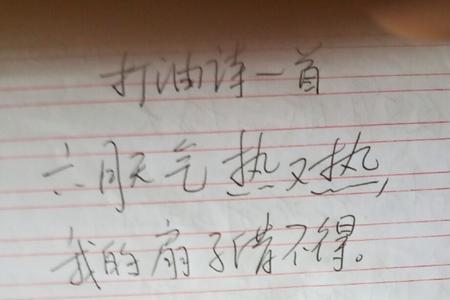 打油诗一首
六月天气热又热，
我的扇子借不得。